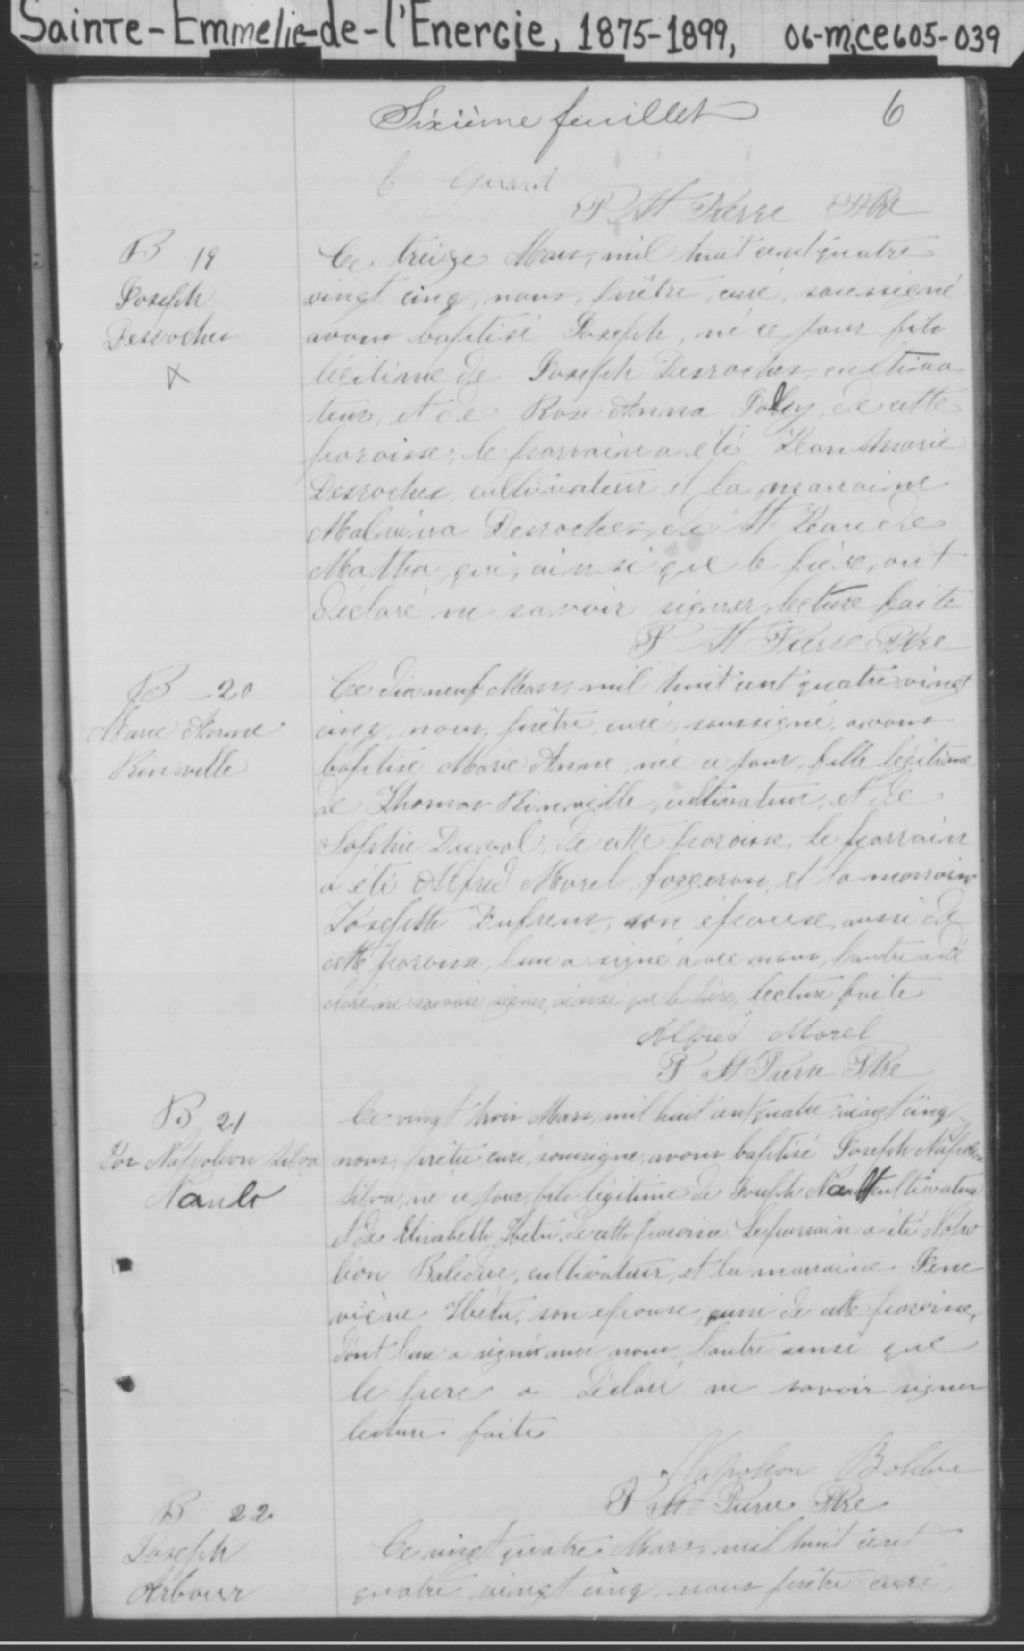 Sainte-Emmelie-de-l'Energie, 1875-1899, 06-M,CE605-039
Sixième feuillet 6
C Girard
P St Pierre Ptre
B 19
Joseph
Desroches
X
Ce treize Mars, mil huit cent quatre
vingt cinq, nous, prêtre, curé, soussigné
avons baptisé Joseph, né ce jour fils
légitime de Joseph Desroches, cultiva
teur, et de Rose Anna de cette
paroisse, le parrain a été Jean Marie
Desroches, cultivateur et la marraine
Malvina Desroches, de St Jean de
Matha, qui, ainsi que le père, ont
déclaré ne savoir signer, lecture faite
P St Pierre Ptre
B 20
Marie Anne
Rinville
Ce dix neuf Mars, mil huit cent quatre vingt
cinq, nous, prêtre, curé, soussigné, avons
baptisé Marie Anne, née ce jour, fille légitime
de Thomas Rinville, cultivateur, et de
Sophie Duval, de cette paroisse, le parrain
a été Alfred Morel, forgeron, et la marraine
Josephte son épouse, aussi de
cette paroisse, l'un a signé avec nous, l'autre a dé
claré ne savoir signer, ainsi que le père, lecture faite
Alfred Morel
P St Pierre Ptre
B 21
Jos Napoléon Silva
Naulo
Ce vingt trois Mars, mil huit cent quatre vingt cinq
nous, prêtre curé, soussigné, avons baptisé Joseph Napoléon
Silva, né ce jour, fils légitime de Joseph cultivateur
et de Elisabeth Hétu, de cette paroisse. Le parrain a été Napo
léon Bolduc, cultivateur, et la marraine Gene
viève Hétu, son épouse, aussi de cette paroisse,
dont l'un a signé avec nous, l'autre ainsi que
le père a déclaré ne savoir signer
lecture faite
Napoléon Bolduc
P St Pierre Ptre
B 22
Joseph
Arbour
Ce vingt quatre Mars, mil huit cent
quatre vingt cinq, nous, prêtre curé,